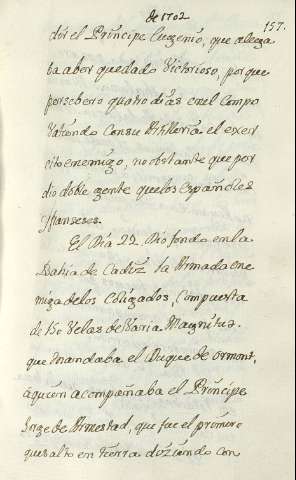 de 1702
157.
dor el Príncipe Eugenio, que alega
ba aber quedado Victorioso, porque
persebero quatro dias en el Campo
batiendo con su Artilleria el exer
cito enemigo, no obstante que per
dio doble gente que los Españoles
y franseses.
El Dia 22 Dio fondo en la
Bahia de Cadiz la Armada ene
miga de los Coligados, Compuesta
de 150 Velas de Varia Magnitud.
que mandaba el Duque de ormont,
à quien acompañaba el Príncipe
Jorge de Armestad, que fue el primero
que salto en tierra diziendo con